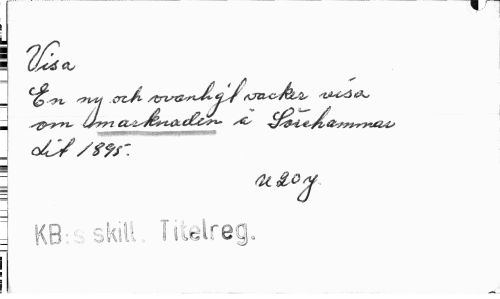 Visa
En ny och ovanligt vacker visa
om marknaden i Sörehammar
dit 1895.
u 20 y.
KB:s skill. Titelreg.